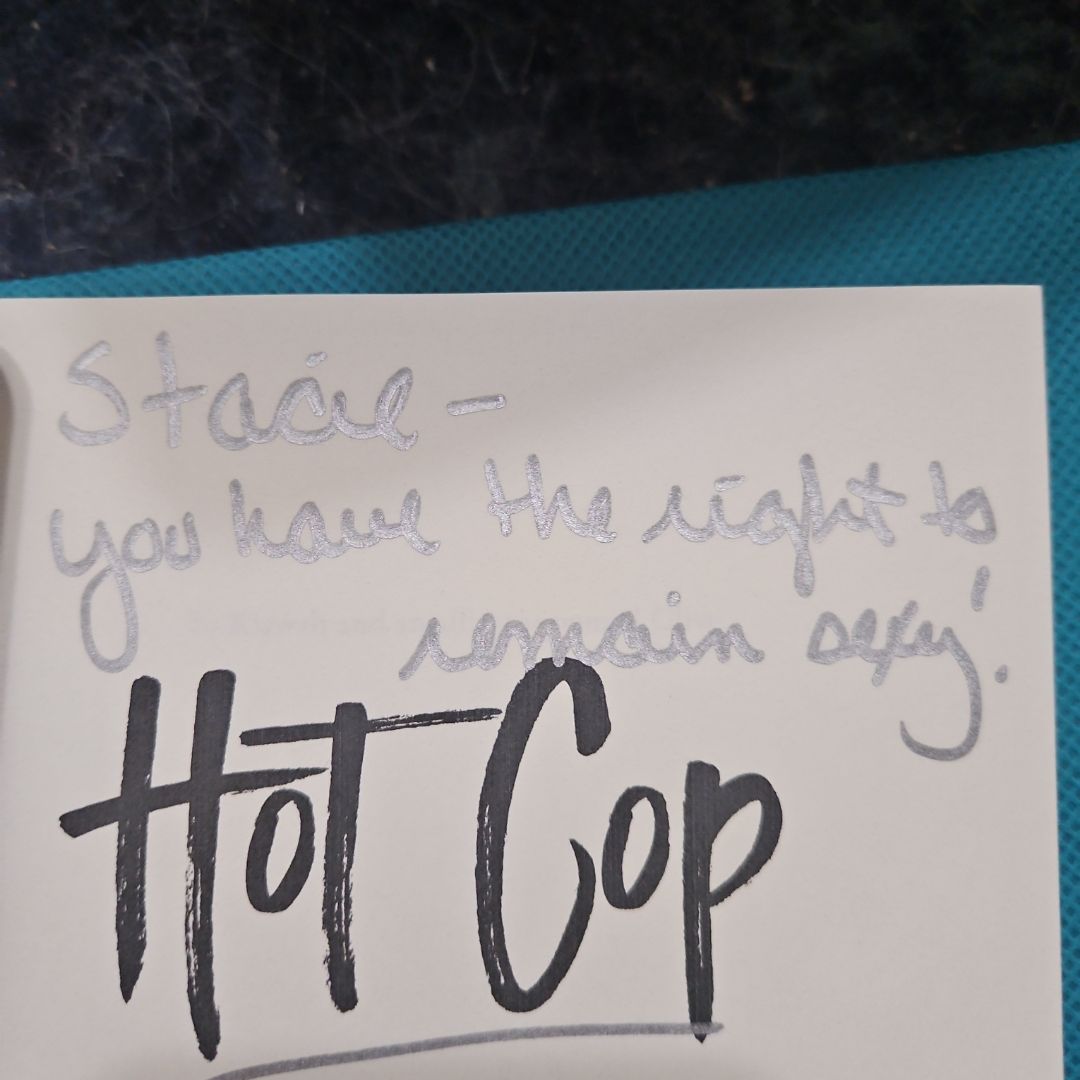 Stacie -
you have the right to
remain sexy!
Hot Cop